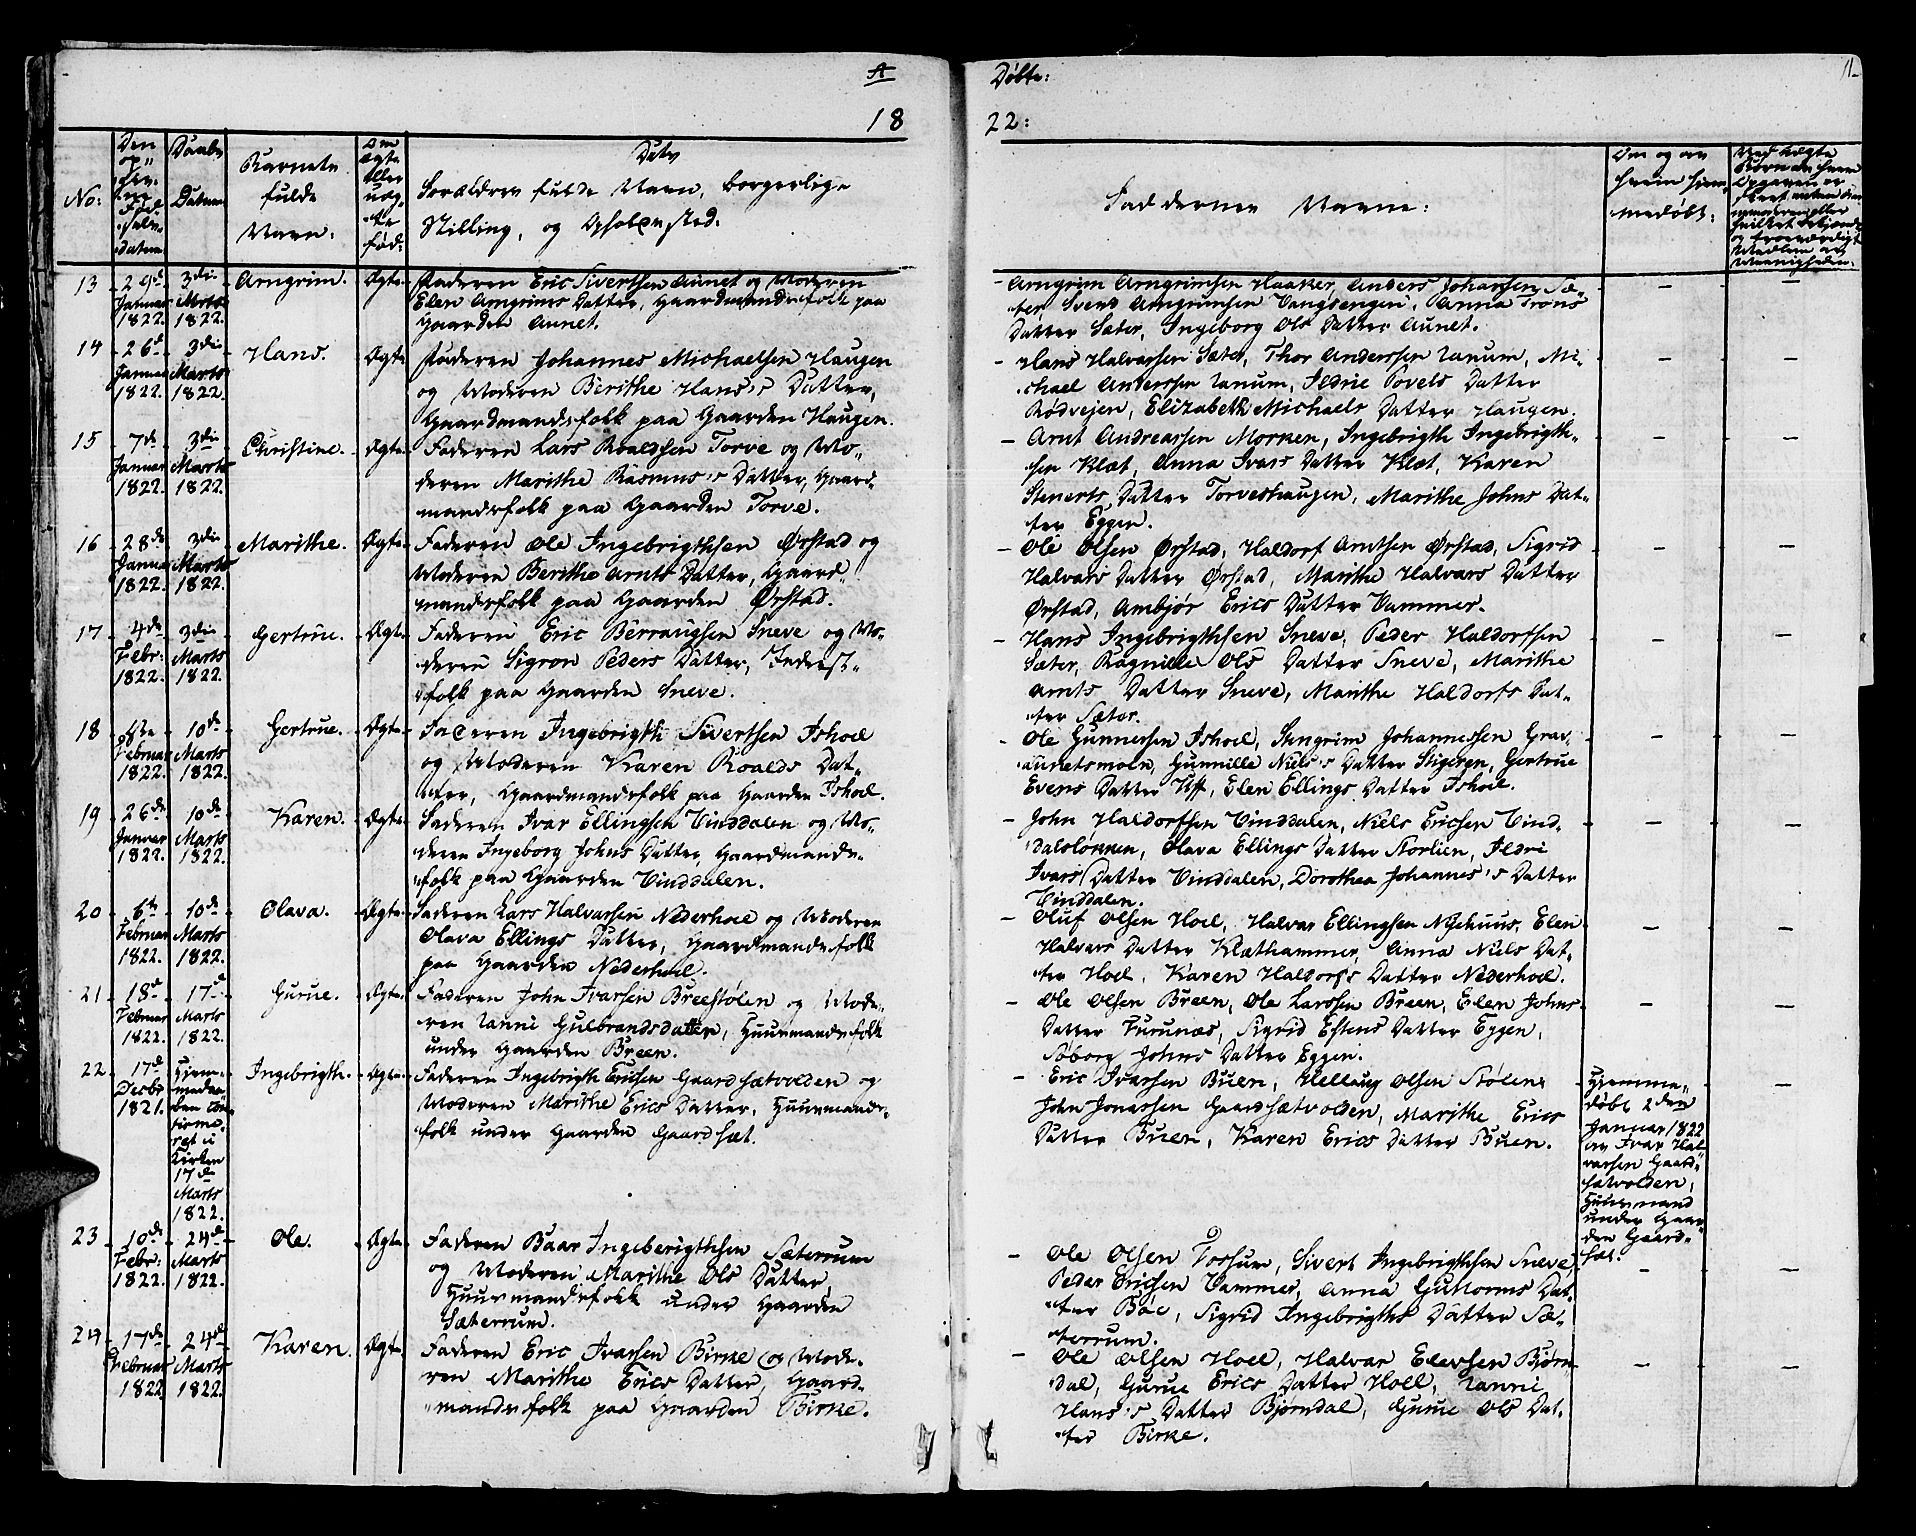 A
18
Døbte:
22:
11.
No:
Den
op„
Daabs
Datum
Barnets
fulde
Navn:
Om
ægte
eller
uæg„
te
fød:
Dets
Forældres fulde Navn, borgerlige
Stilling, og Opholdssted.
Faddernes Navne:
Om og av
hvem hjem„
medøbt:
13
29de
Januar
1822.
3die
Marts
1822.
Arngrim.
Ægte
Faderen Eric Sivertsen Aunet og Moderen
Elen Arngrims Datter, Gaardmandsfolk paa
Gaarden Aunet.
Arngrim Arngrimsen Haaker, Anders Johansen Sæ„
ter, Svend Arngrimsen Vangsengen, Anna Trøns
Datter Sæter, Ingeborg Ols Datter Aunet.
14
26de
Januar
1822.
3die
Marts
1822.
Hans.
Ægte
Faderen Johannes Michaelsen Haugen
og Moderen Berithe Hans's Datter,
Gaardmandsfolk paa Gaarden Haugen.
Hans Halvarsen Sæter, Thor Anderssen Hanum, Mi„
chael Anderssen Hanum, Ildrie Povels Datter
Rødvejen, Elizabeth Michaels Datter Haugen.
15
7de
Januar
1822.
3die
Marts
1822.
Christine.
Ægte
Faderen Lars Roaldsen Torve og Mo„
deren Marithe Rasmus's Datter, Gaard„
mandsfolk paa Gaarden Torve.
Arnt Andreassen Morken, Ingebrigth Ingebrigth„
sen Klæt, Anna Ivars Datter Klæt, Karen
Stenerts Datter Torveshaugen, Marithe Johns Dat„
ter Eggen.
16
28de
Januar
1822.
3die
Marts
1822.
Marithe.
Ægte
Faderen Ole Ingebrigthsen Ørstad og
Moderen Berithe Arnts Datter, Gaard„
mandsfolk paa Gaarden Ørstad.
Ole Olsen Ørstad, Haldorf Arntsen Ørstad, Sigrid
Halvars Datter Ørstad, Marithe Halvars Datter
Ørstad, Ambjør Erics Datter Vammer.
17
4de
Febr:
1822.
3die
Marts
1822.
Gertrue.
Ægte
Faderen Eric Berraugsen Sneve og Mo„
deren Sigron Peders Datter, Inderst„
folk paa Gaarden Sneve.
Hans Ingebrigthsen Sneve, Peder Haldorfsen
Sæter, Ragnille Ols Datter Sneve, Marithe
Arnts Datter Sneve, Marithe Haldorfs Dat„
ter Sæter.
18
Februar
1822.
10de
Marts
1822.
Gertrue.
Ægte
Faderen Ingebrigth Sivertsen Ishoel
og Moderen Karen Roalds Dat„
ter, Gaardmandsfolk paa Gaarden Ishoel.
Ole Gunnersen Ishoel, Stengrim Johannessen Grav„
aunetsmoln, Gunnille Niels's Datter Stigeren, Gertrue
Evens Datter Uff, Elen Ellings Datter Ishoel.
19
26de
Januar
1822.
10de
Marts
1822.
Karen.
Ægte
Faderen Ivar Ellingsen Vinddalen og Mo„
deren Ingeborg Johns Datter, Gaardmands„
folk paa Gaarden Vinddalen.
John Haldorfsen Vinddalen, Niels Ericsen Vind„
dalsløkken, Olava Ellings Datter Storlien, Ildri
Ivars Datter Vinddalen, Dorothea Johannes's Datter
Vinddalen.
20
6te
Februar
1822.
10de
Marts
1822.
Olava.
Ægte
Faderen Lars Halvarsen Nederhoel og Moderen
Olava Ellings Datter, Gaardmandsfolk
paa Gaarden Nederhoel.
Oluf Olsen Hoel, Halvar Ellingsen Nyehuus, Elen
Halvars Datter Klæthammer, Anna Niels Dat„
ter Hoel, Karen Haldorfs Datter Nederhoel.
21
18de
Februar
1822.
17de
Marts
1822.
Gurue.
Ægte
Faderen John Ivarsen Breestølen og Mode„
ren Hanni Gulbrandsdatter, Huusmandsfolk
under Gaarden Breen.
Ole Olsen Breen, Ole Larssen Breen, Elen Johns
Datter Furunæs, Sigrid Estens Datter Eggen,
Søborg Johns Datter Eggen.
22
17de
Decbr
1821.
Hjem„
medaa„
ben con„
firme„
ret i
Kirken
17de
Marts
1822.
Ingebrigth.
Ægte
Faderen Ingebrigth Ericsen Gaardsætvolden og
Moderen Marithe Erics Datter, Huusmands„
folk under Gaarden Gaardsæt.
Eric Ivarsen Buen, Hellaug Olsen Stølen,
John Jonassen Gaardsætvolden, Marithe Erics
Datter Buen, Karen Erics Datter Buen.
Hjemme„
døbt 2den
Januar 1822
av Ivar Hal„
varsen Gaard„
sætvolden,
Huusmand
under Gaar„
den Gaard„
sæt.
23
10de
Febr:
1822.
24de
Marts
1822.
Ole.
Ægte
Faderen Baar Ingeberigthsen Sæterrum
og Moderen Marithe Ols Datter
Huusmandsfolk under Gaarden
Sæterrum.
Ole Olsen Tossum, Sivert Ingebrigthsen Sneve,
Peder Ericsen Vammer, Anna Guttorms Dat„
ter Bøe, Sigrid Ingebrigths Datter Sæ„
terrum.
24
17de
Februar
1822
24de
Marts
1822.
Karen.
Ægte
Faderen Eric Ivarsen Birke og Mode„
ren Marithe Erics Datter, Gaard„
mandsfolk paa Gaarden Birke.
Ole Olsen Hoel, Halvar Elevsen Bjørn„
dal, Gurue Erics Datter Hoel, Hanni
Hans's Datter Bjørndal, Gurue Ols Dat„
ter Birke.